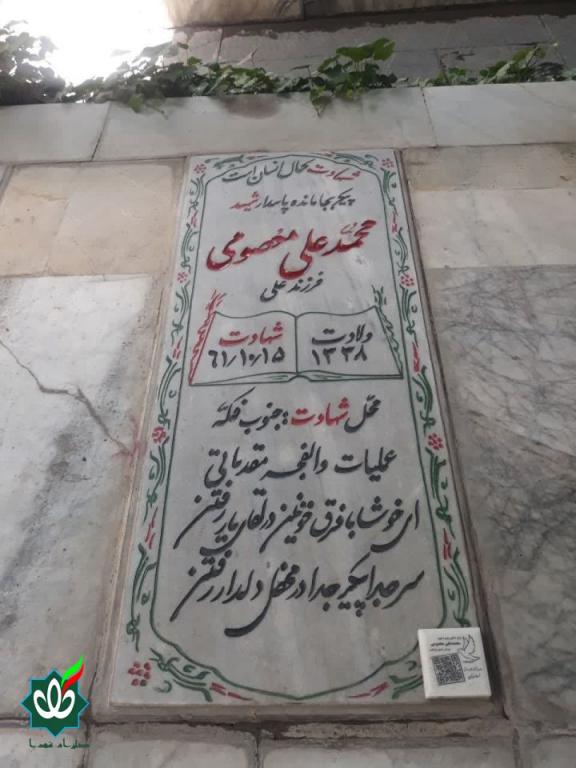 شهادت کمال انسان است
پیکر بجا مانده پاسدار شهید
محمد علی معصومی
فرزند علی
ولادت
۱۳۳۸
شهادت
۶۱/۱۰/۱۵
محل شهادت: جنوب فکه
عملیات والفجر مقدماتی
ای خوشا با فرق خونین در لقای یار رفتن
سر جدا پیکر جدا در محفل دلدار رفتن